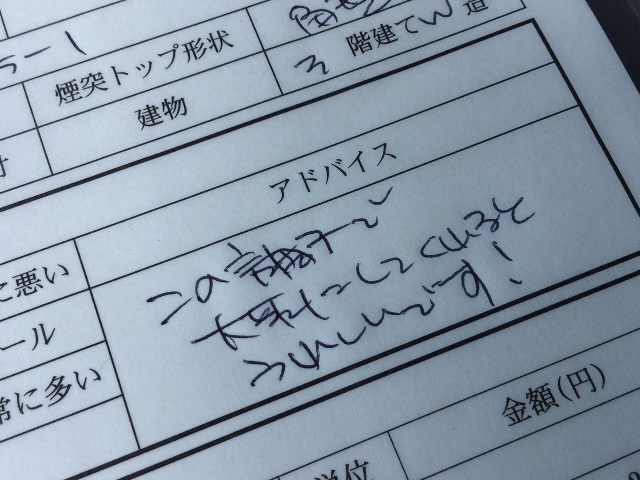 ラー1
煙突トップ形状
建物
3 階建て W 造
アドバイス
に悪い
ール
常に多い
この調子で
大事にしてくれると
うれしいです!
単位
金額(円)